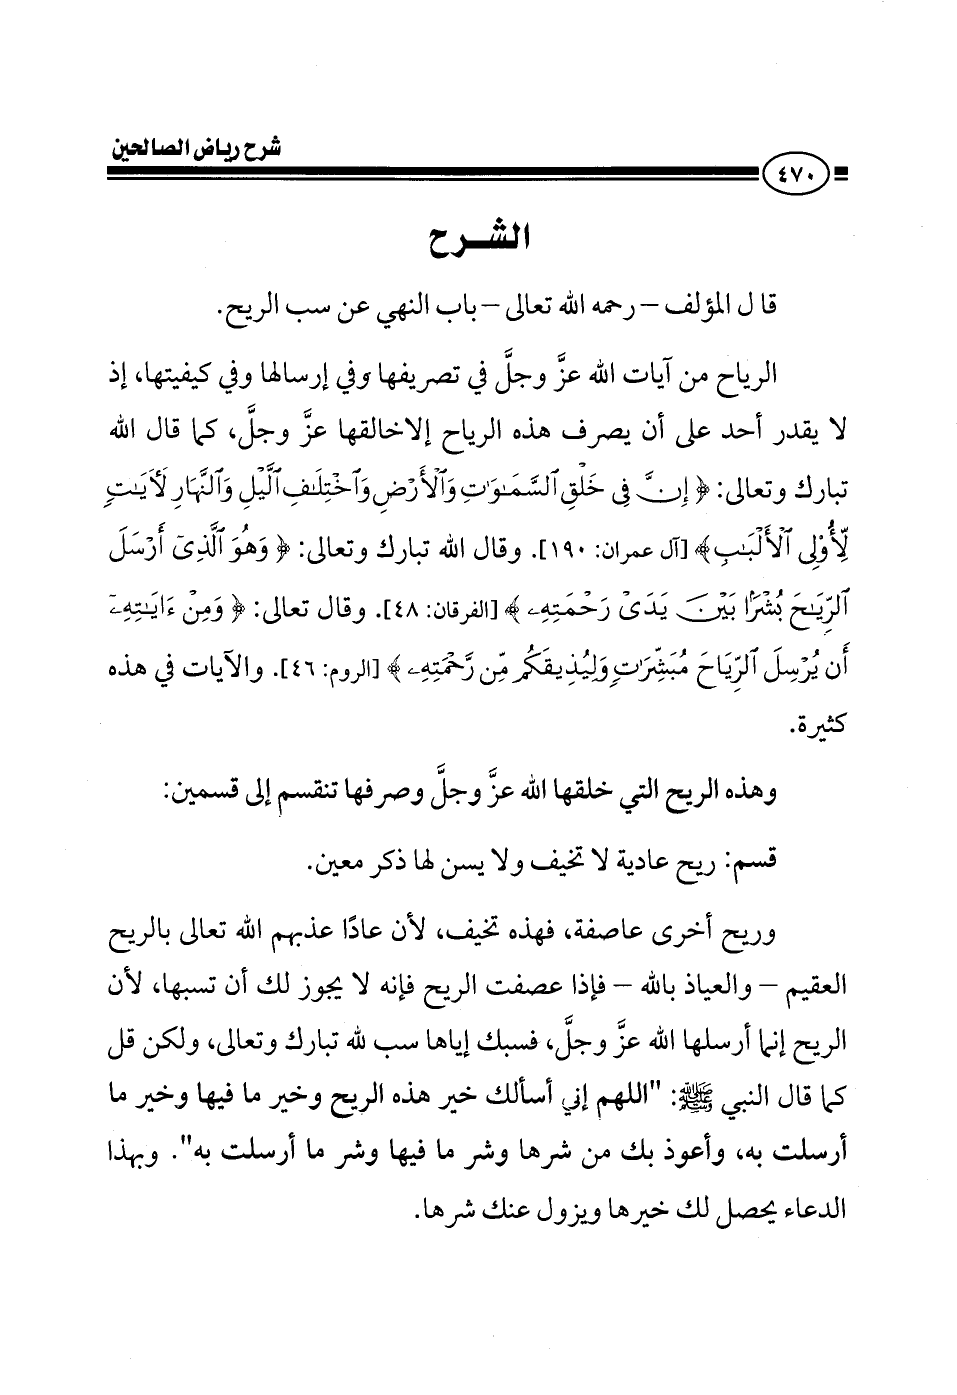 شرح رياض الصالحين
٤٧٠
الشـرح
قال المؤلف – رحمه الله تعالى – باب النهي عن سب الريح.
الرياح من آيات الله عزَّ وجلَّ في تصريفها وفي إرسالها وفي كيفيتها، إذ
لا يقدر أحد على أن يصرف هذه الرياح إلا خالقها عزَّ وجلَّ، كما قال الله
تبارك وتعالى: ﴿ إِنَّ فِي خَلْقِ ٱلسَّمَٰوَٰتِ وَٱلْأَرْضِ وَٱخْتِلَٰفِ ٱلَّيْلِ وَٱلنَّهَارِ لَأَيَٰتٍ
لِّأُو۟لِى ٱلْأَلْبَٰبِ﴾ [آل عمران: ١٩٠]. وقال الله تبارك وتعالى: ﴿ وَهُوَ ٱلَّذِىٓ أَرْسَلَ
ٱلرِّيَٰحَ بُشْرًۢا بَيْنَ يَدَىْ رَحْمَتِهِۦ ﴾ [الفرقان: ٤٨]. وقال تعالى: ﴿ وَمِنْ ءَايَٰتِهِۦٓ
أَن يُرْسِلَ ٱلرِّيَاحَ مُبَشِّرَٰتٍ وَلِيُذِيقَكُم مِّن رَّحْمَتِهِۦ ﴾ [الروم: ٤٦]. والآيات في هذه
كثيرة.
وهذه الريح التي خلقها الله عزَّ وجلَّ وصرفها تنقسم إلى قسمين:
قسم: ريح عادية لا تخيف ولا يسن لها ذكر معين.
وريح أخرى عاصفة، فهذه تخيف، لأن عادًا عذبهم الله تعالى بالريح
العقيم – والعياذ بالله – فإذا عصفت الريح فإنه لا يجوز لك أن تسبها، لأن
الريح إنما أرسلها الله عزَّ وجلَّ، فسبك إياها سب لله تبارك وتعالى، ولكن قل
كما قال النبي ﷺ: "اللهم إني أسألك خير هذه الريح وخير ما فيها وخير ما
أرسلت به، وأعوذ بك من شرها وشر ما فيها وشر ما أرسلت به". وبهذا
الدعاء يحصل لك خيرها ويزول عنك شرها.